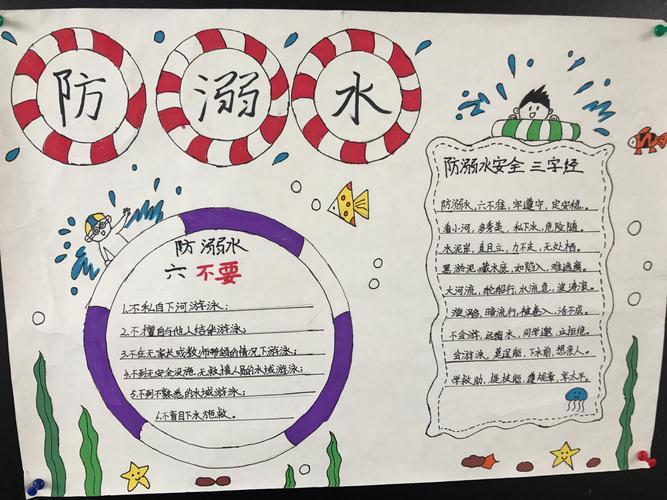 防溺水
防溺水
六不要
1.不私自下河游泳；
2.不擅自与他人结伴游泳；
3.不在无家长或教师带领的情况下游泳；
4.不到无安全设施、无救援人员的水域游泳；
5.不到不熟悉的水域游泳；
6.不盲目下水施救。
防溺水安全三字经
防溺水，六不准，牢遵守，定安稳。
看小河，多秀美，私下水，危险随。
水泥岸，直且立，力不支，无处栖。
黑淤泥，藏水底，如陷入，难逃离。
大河流，轮船行，水流急，波涛
漩涡，暗流行，被卷入，活不成。
不会游，远离水，同学邀，立拒绝。
会游泳，莫逞能，下水前，想亲人。
学救助，提技能，遵规章，享太平。